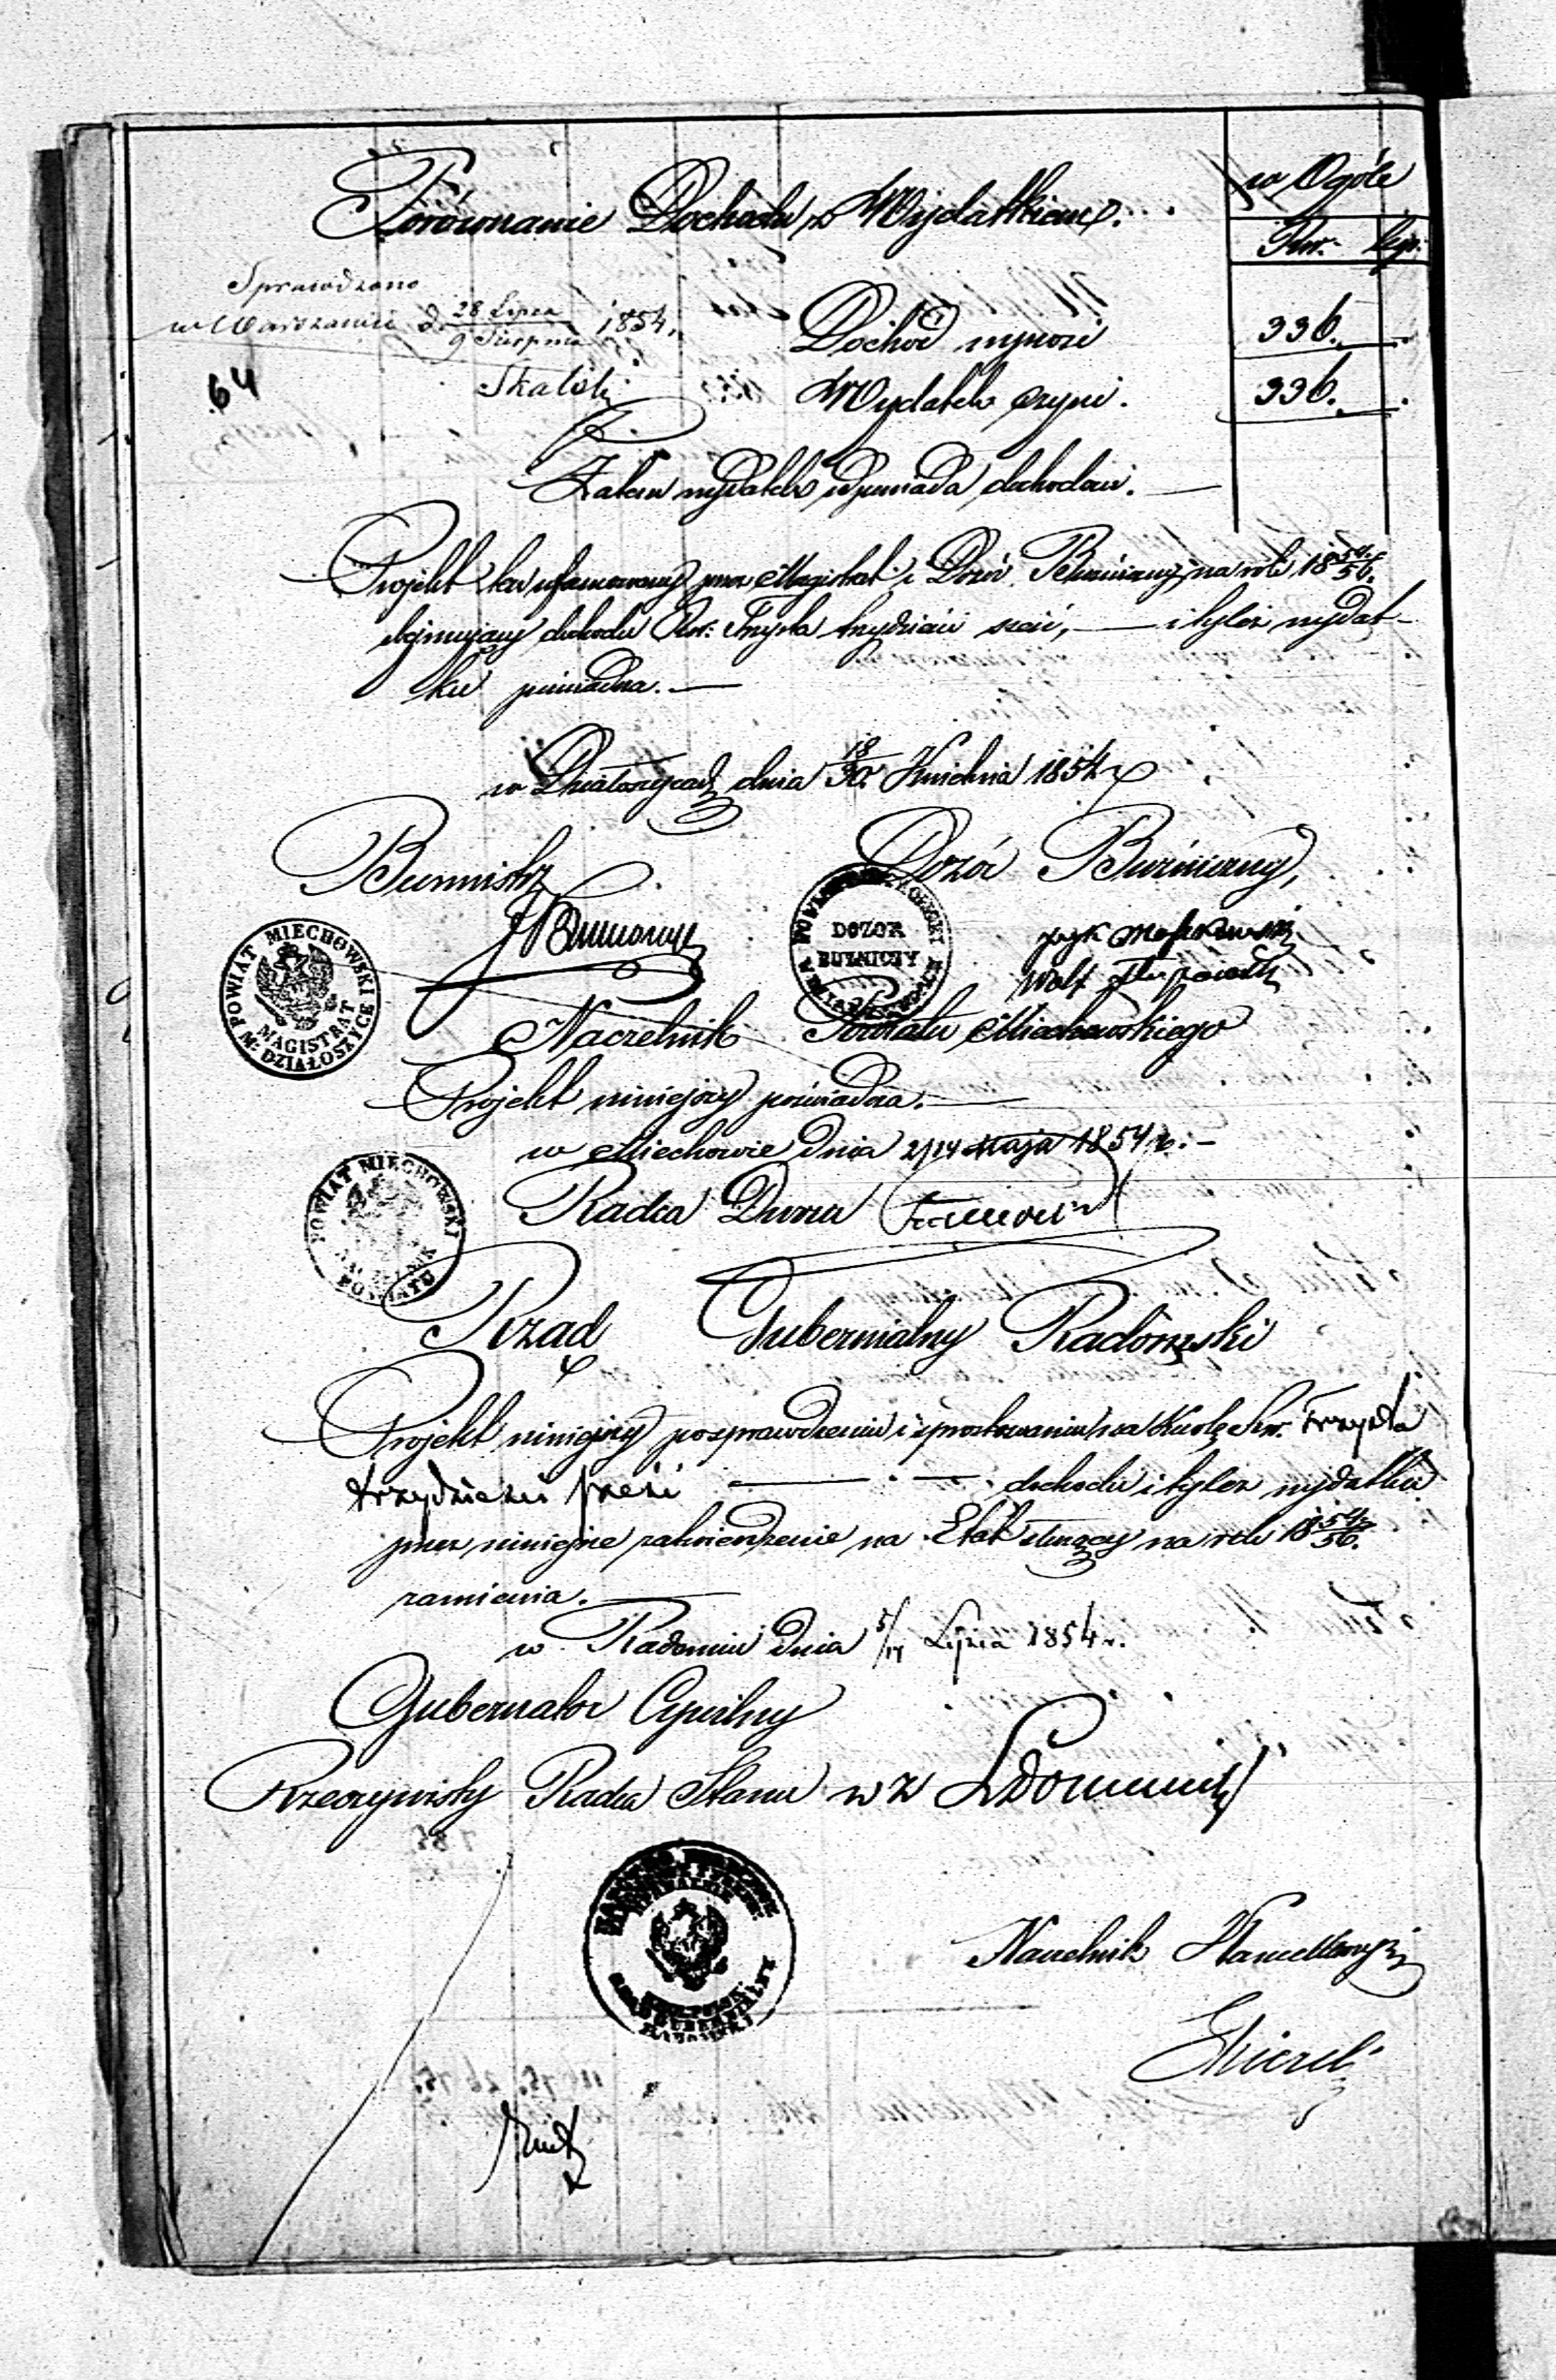 w Ogóle
Porównanie Dochodu z Wydatkiem.
Rsr. kop.
Sprawdzono
w Warszawie d. 28 Lipca / 9 Sierpnia 1854.
Dochód wynosi 336. —
64
Wydatek czyni. 336. —
Zatem wydatek odpowiada dochodowi. —
Projekt ten uformowany przez Magistrat i Dozór Bużniczny, na rok 1854/56.
obejmujący dochodu Rsr. Trzysta trzydzieści sześć, — i tyleż wydat-
ku poświadcza. —
w Działoszycach dnia 18/30 Kwietnia 1854 r
Burmistrz
Dozór Bużniczny,
POWIAT MIECHOWSKI
MAGISTRAT
M. DZIAŁOSZYCE
DOZOR
BUZNICZY
Naczelnik Powiatu Miechowskiego
Projekt niniejszy poświadcza. —
w Miechowie dnia 2/14 Maja 1854 r. —
POWIAT MIECHOWSKI
NACZELNIK
POWIATU
Radca Dworu
Rząd Gubernialny Radomski
Projekt niniejszy po sprawdzeniu i sprostowaniu na kwotę Rsr. Trzysta
trzydzieści sześć — dochodu i tyleż wydatku
przez niniejsze zatwierdzenie na Etat służący na rok 1854/56.
zamienia. —
w Radomiu dnia 5/17 Lipca 1854 r.
Gubernator Cywilny
Rzeczywisty Radca Stanu w z
Naczelnik Kancellaryi